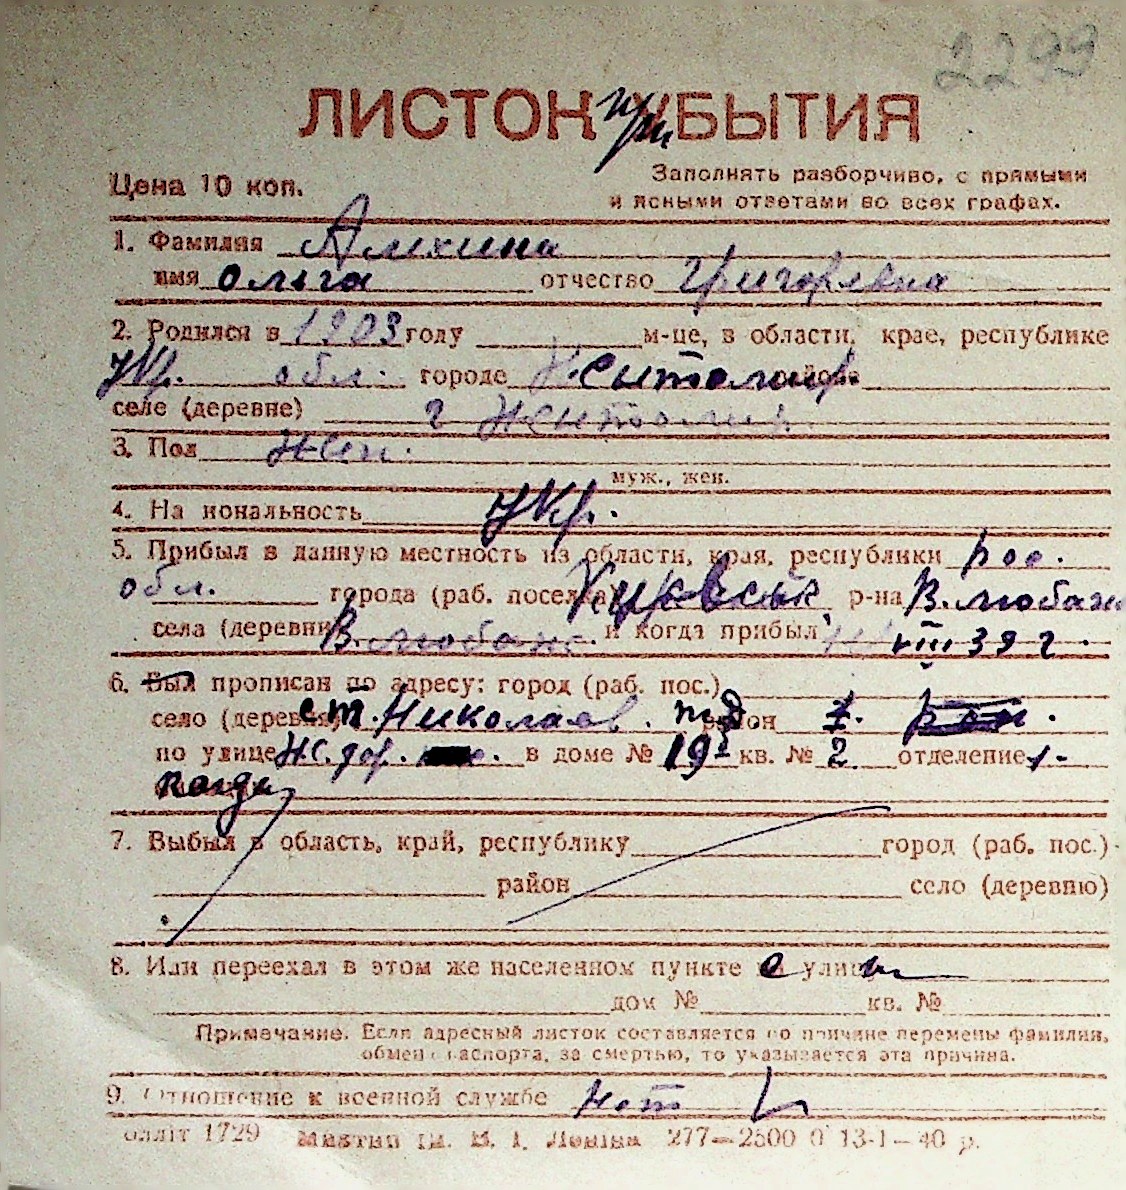 2299
ЛИСТОК при УБЫТИЯ
Цена 10 коп. Заполнять разборчиво, с прямыми
и ясными ответами во всех графах.
1. Фамилия Алехина
имя Ольга отчество Григоревна
2. Родился в 1903 году м-це, в области, крае, республике
Укр. обл. городе Житомир района
селе (деревне) г Житомир.
3. Пол жен.
муж., жен.
4. На иональность Укр.
5. Прибыл в данную местность из области, края, республики
обл. города (раб. поселка) р-на В. любаж
села (деревни) В. любаж и когда прибыл VIII 39 г.
6. Был прописан по адресу: город (раб. пос.)
село (деревня) ст. Николаев. район
по улице Ж. дор. в доме № 19 кв. № 2 отделение 1-
7. Выбыл в область, край, республику город (раб. пос.)
район село (деревню)
8. Или переехал в этом же населенном пункте с улицы
дом № кв. №
Примечание. Если адресный листок составляется по причине перемены фамилии,
обмен паспорта, за смертью, то указывается эта причина.
9. Отношение к военной службе Нет
лліт 1729 ім. В. І. Леніна 277—2500 0 13-1—40 р.